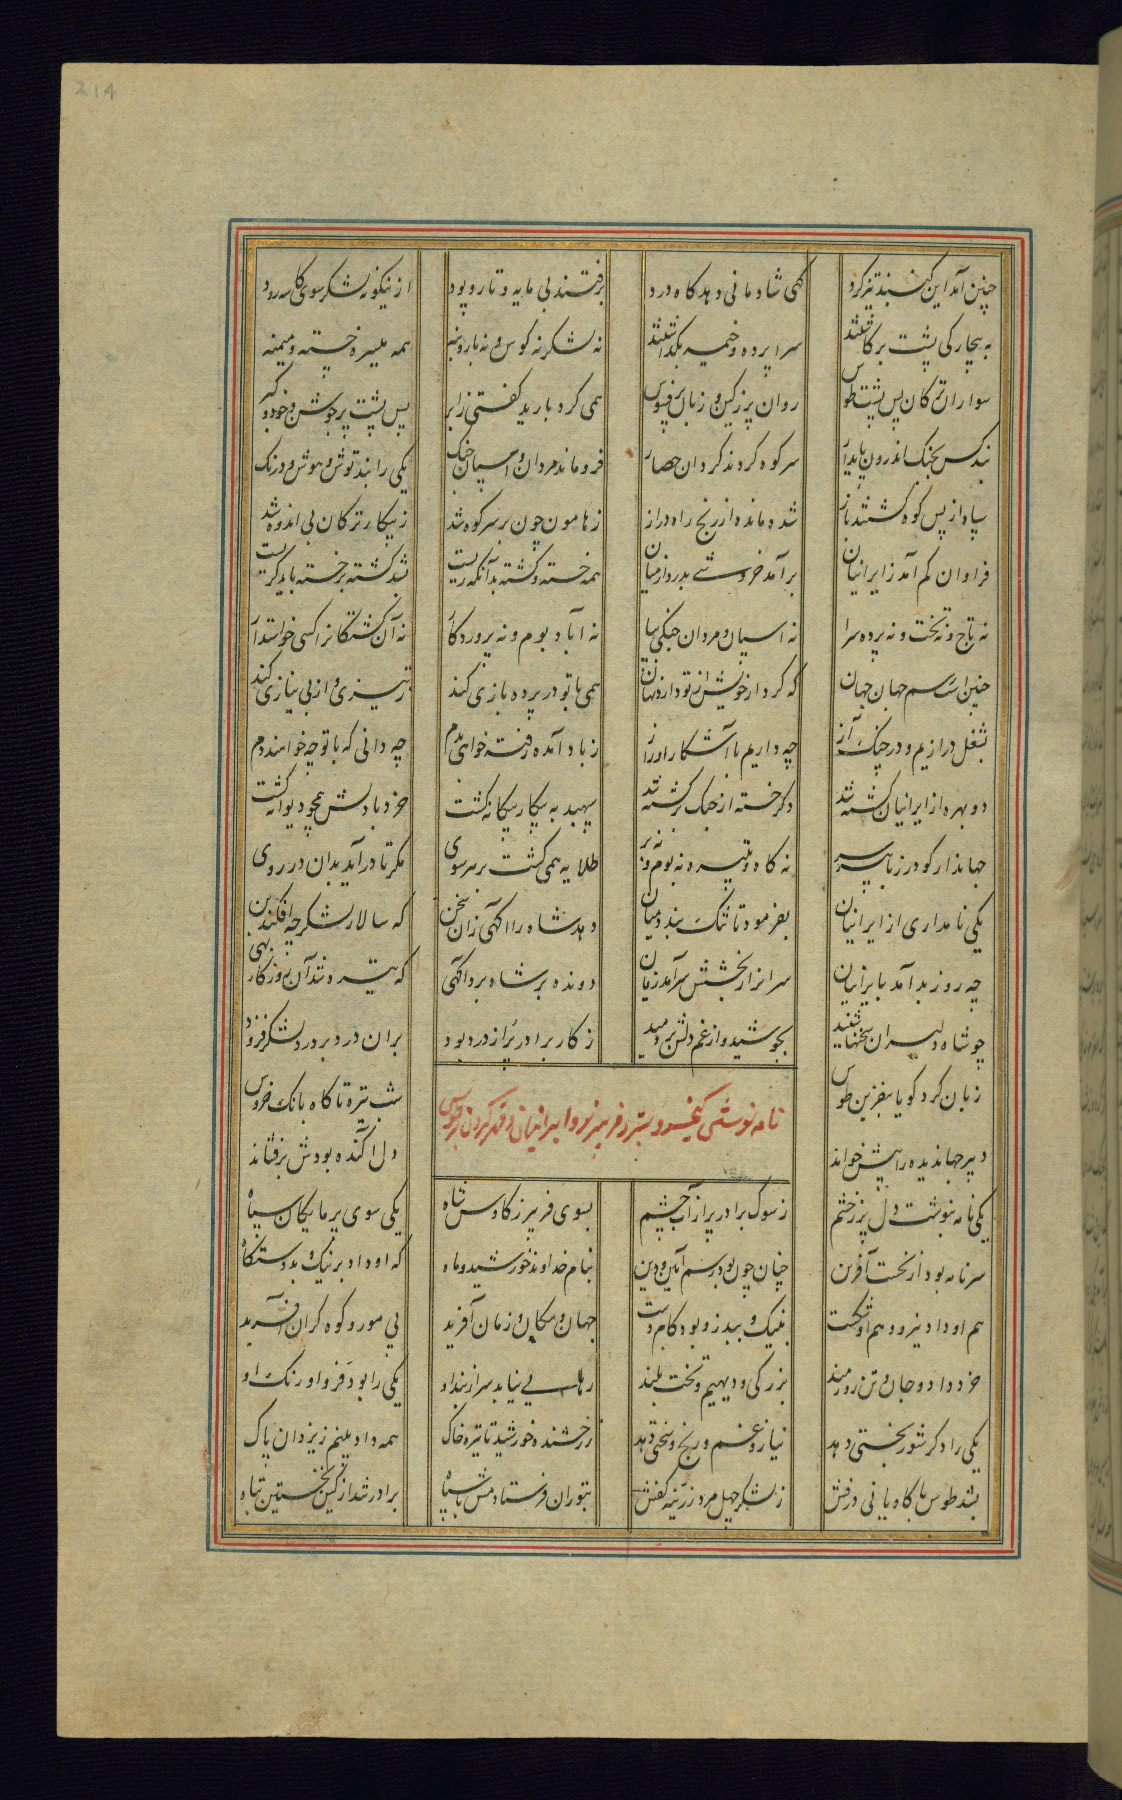 214
چنین آمد این گنبد تیزگرد گهی شادمانی دهد گاه درد
برفتند بی مایه و تار و پود ازینگونه لشکر سوی کاسه رود
به بیچارگی پشت برگاشتند سراپرده و خیمه بگذاشتند
نه لشکر نه کوس و نه بار و بنه همه میسره خسته و میمنه
سواران ترکان پس پشت طوس روان پر ز کین و زبان پر فسوس
همی گرد بارید گفتی ز ابر پس پشت بر جوشن و خود و گبر
نبد کس بجنگ اندرون پایدار سر کوه کردند گردان حصار
فرو ماند مردان و اسپان جنگ یکی را نبد توش و هوش و درنگ
سپاه از پس کوه گشتند باز شده مانده از رنج راه دراز
ز هامون چون بر سر کوه شد ز پیکار ترکان بی اندوه شد
فراوان کم آمد ز ایرانیان برآمد خروشی بدرد از میان
همه خسته و کشته بد آنکه زیست بشد کشته بر خسته باید گریست
نه تاج و نه تخت و نه پرده سرا نه اسپان و مردان جنگی بپا
نه آباد بوم و نه پروردگار نه آن کشتگانرا کسی خواستدار
چنین است رسم جهان جهان که کردار خویش از تو دارد نهان
همی با تو در پرده بازی کند ز تیزی و از بی نیازی کند
بشغل درازیم و در چنگ آز چه داریم با آشکارا و راز
ز باد آمده رفته خواهی بدم چه دانی که با تو چه خواهند دم
دو بهره از ایرانیان کشته شد دگر خسته از جنگ برگشته شد
سپهبد به پیکار بیگانه گشت خرد با دلش همچو دیوانه گشت
جهاندار گودرز با پیر سر نه گاه و نبیره نه بوم و نه بر
طلایه همی گشت بر هر سوی مگر تا درآید بدان در روی
یکی نامداری از ایرانیان بفرمود تا تنگ بندد میان
دهد شاه را آگهی زان سخن که سالار لشکر چه افکند بن
چه روز بد آمد بایرانیان سرانرا ز بخشش سرآمد زمان
دونده بر شاه برد آگهی که تیره شد آن روزگار بهی
چو شاه دلیران سخنها شنید بجوشید و از غم دلش بردمید
ز کار برادر پر از درد بود بران درد بر درد لشکر فزود
زبان کرد گویا بنفرین طوس شب تیره تا گاه بانگ خروس
نامه نوشتن کیخسرو بنزد فریبرز و ایرانیان و قهر کردن بر طوس
دبیر جهاندیده را پیش خواند دل آکنده بودش برفشاند
یکی نامه بنوشت دل پر ز خشم ز سوگ برادر پر از آب چشم
بسوی فریبرز کاوس شاه یکی سوی پرمایگان سپاه
سر نامه بود از نخست آفرین چنان چون بود رسم آیین و دین
بنام خداوند خورشید و ماه که او داد بر نیک و بد دستگاه
هم او داد نیرو و هم او شکست بنیک و ببد زو بود کام و دست
جهان و مکان و زمان آفرید پی مور و کوه گران آفرید
خرد داد و جان و تن زورمند بزرگی و دیهیم و تخت بلند
رهایی نیابد سر از بند او یکی را بود فر و اورنگ او
یکی را دگر شوربختی دهد نیاز و غم و رنج و سختی دهد
ز رخشنده خورشید تا تیره خاک همه داد بینم ز یزدان پاک
بشد طوس با کاویانی درفش ز لشکر چهل مرد زرینه کفش
بتوران فرستادمش با سپاه برادر شد از کین نخستین تباه